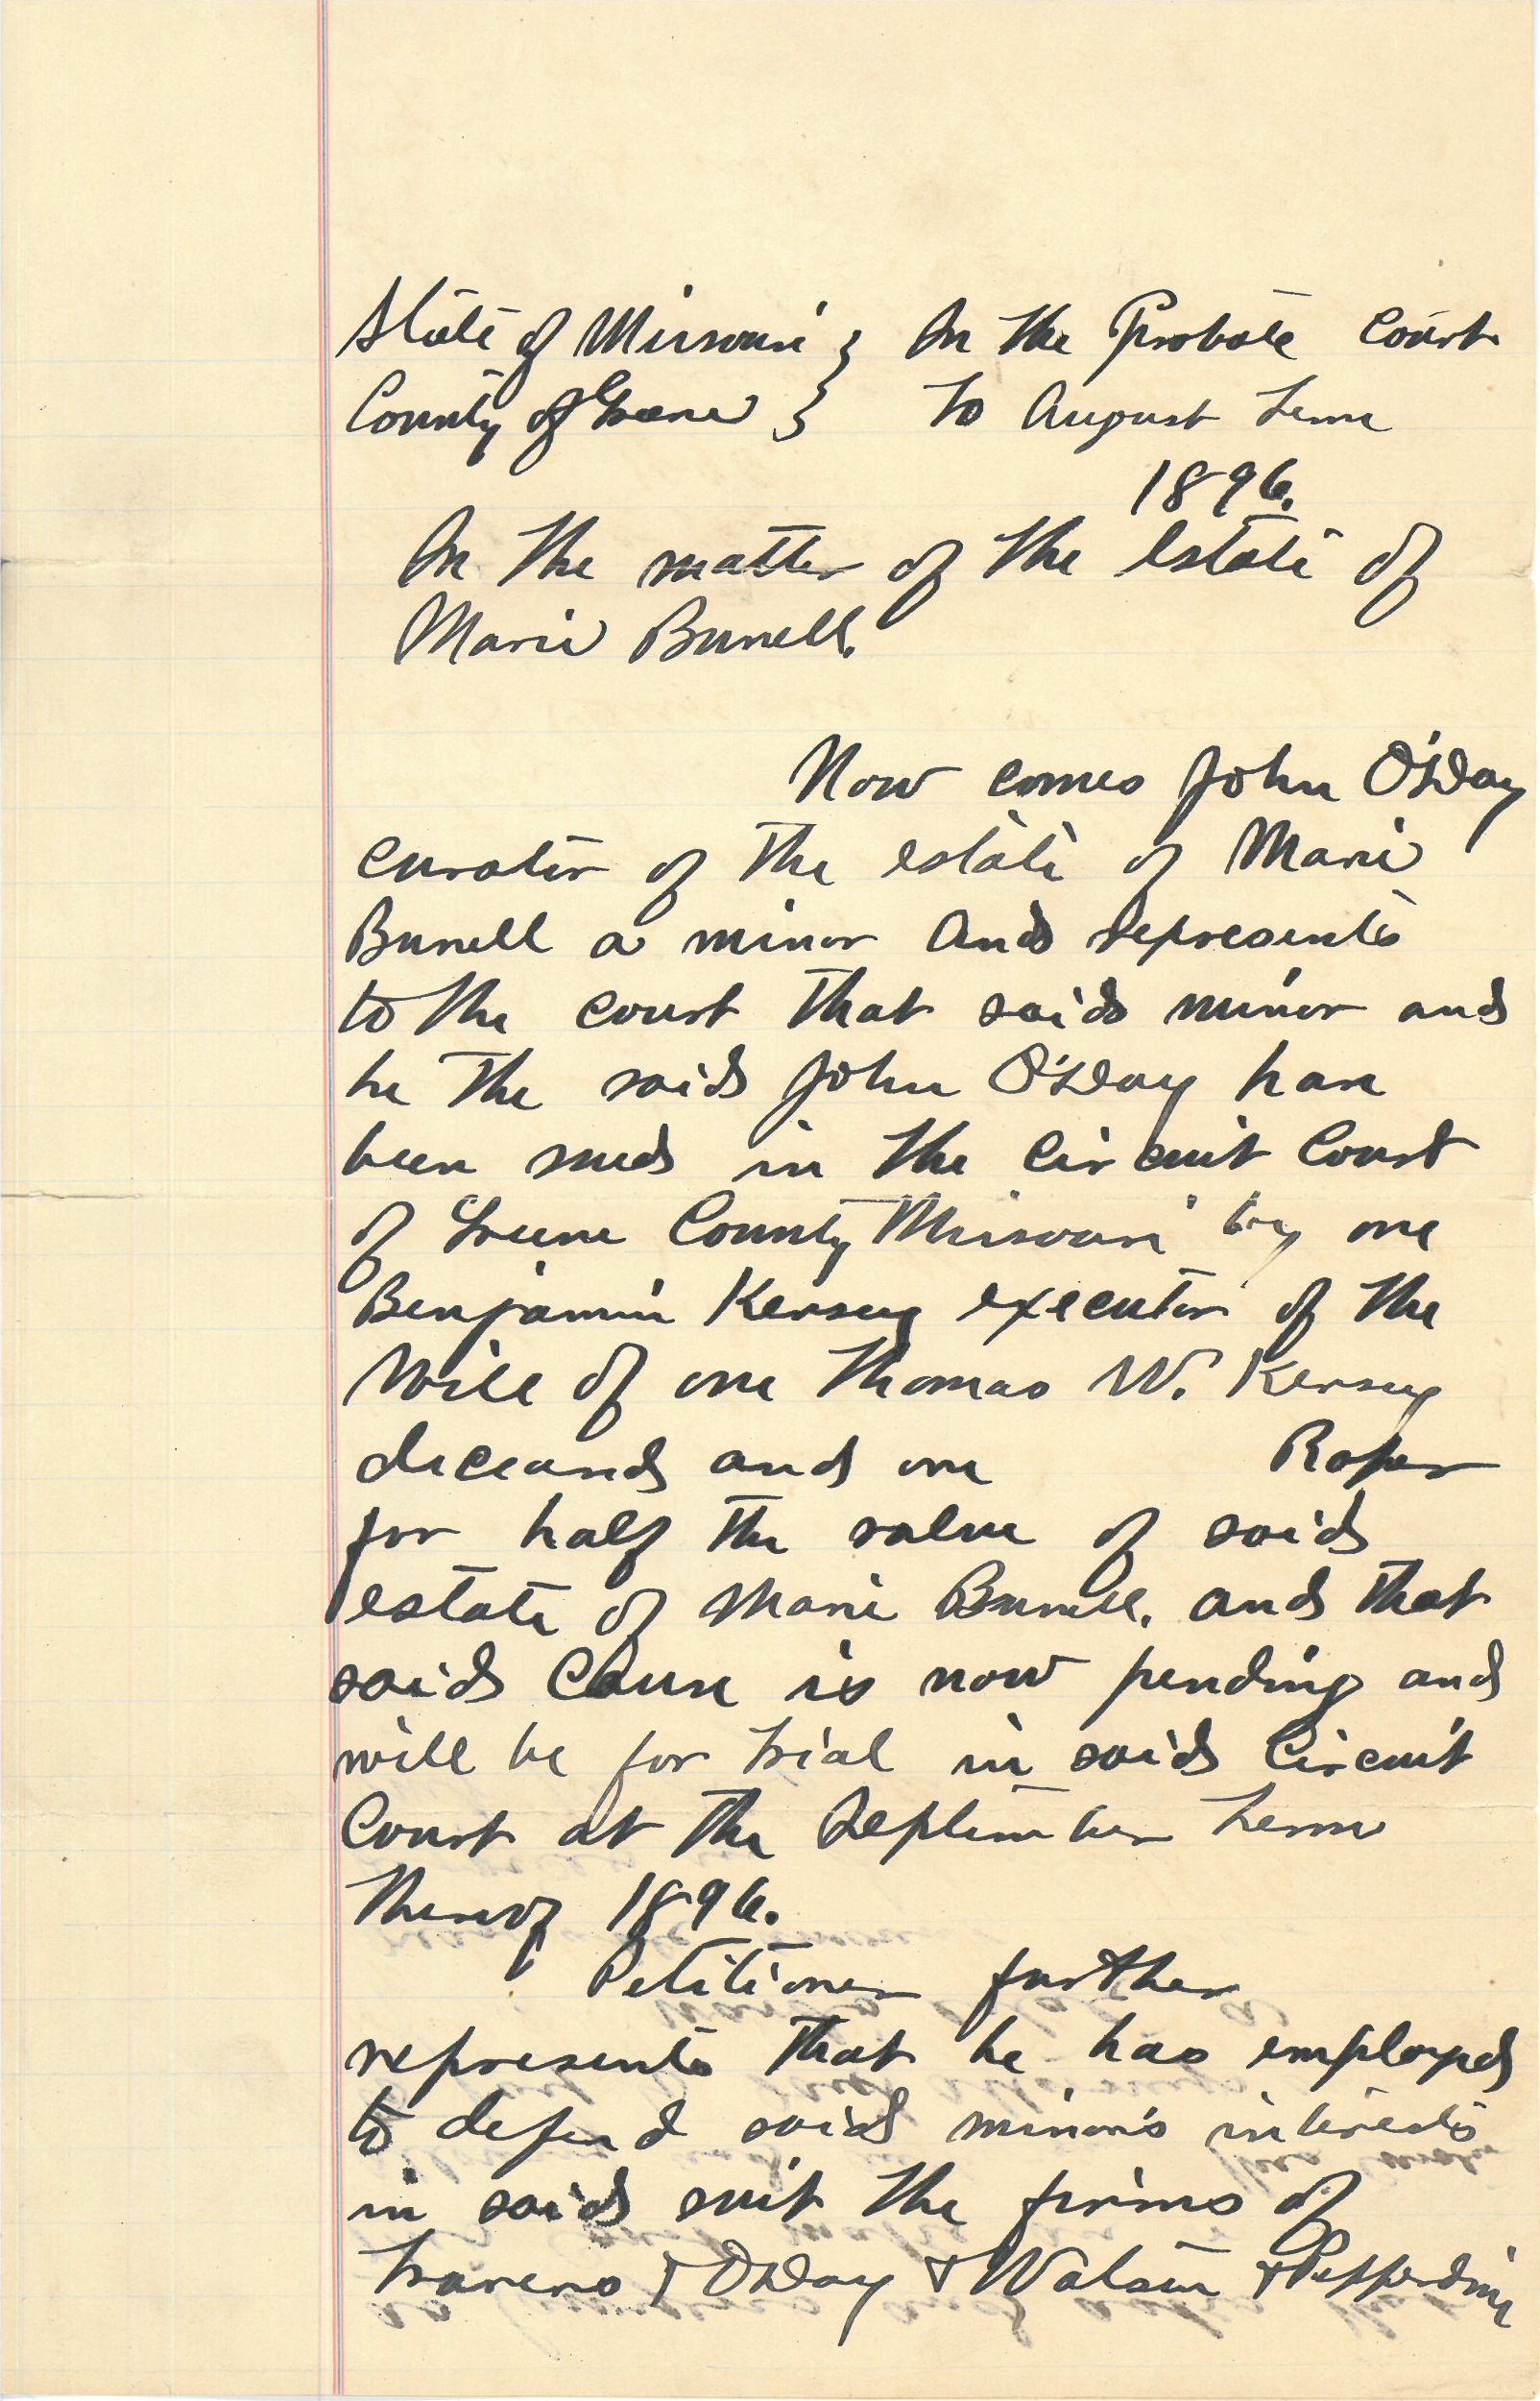 State of Missouri } In the Probate Court
County of Greene } To August Term
1896.
In the matter of the Estate of
Marie Burrell.
Now comes John O'Day
curator of the estate of Marie
Burrell a minor and represents
to the court that said minor and
he the said John O'Day have
been sued in the Circuit Court
of Greene County Missouri by one
Benjamin Kersey executor of the
Will of one Thomas W. Kersey
deceased and one Roper
for half the value of said
estate of Marie Burrell. and that
said Cause is now pending and
will be for trial in said Circuit
Court at the September Term
thereof 1896.
Petitioner further
represents that he has employed
to defend said minor's interests
in said suit the firms of
Travers & O'Day & Watson & Pepperdine